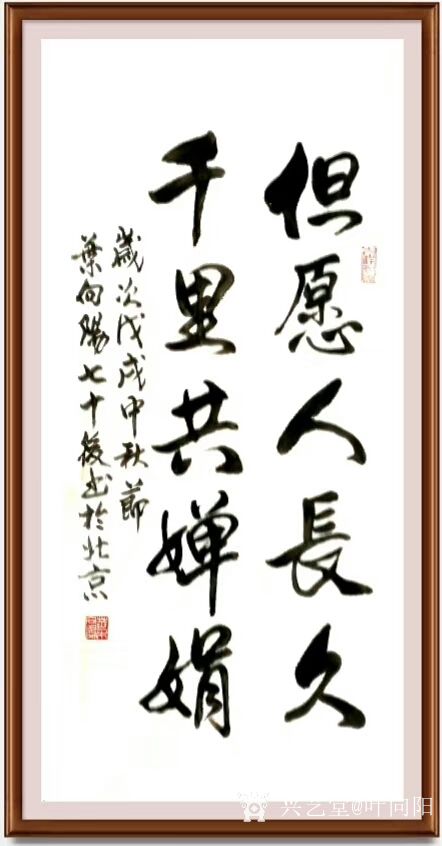 但愿人長久
千里共婵娟
歲次戊戌中秋節
葉向陽七十後书於北京
兴艺堂@叶向阳